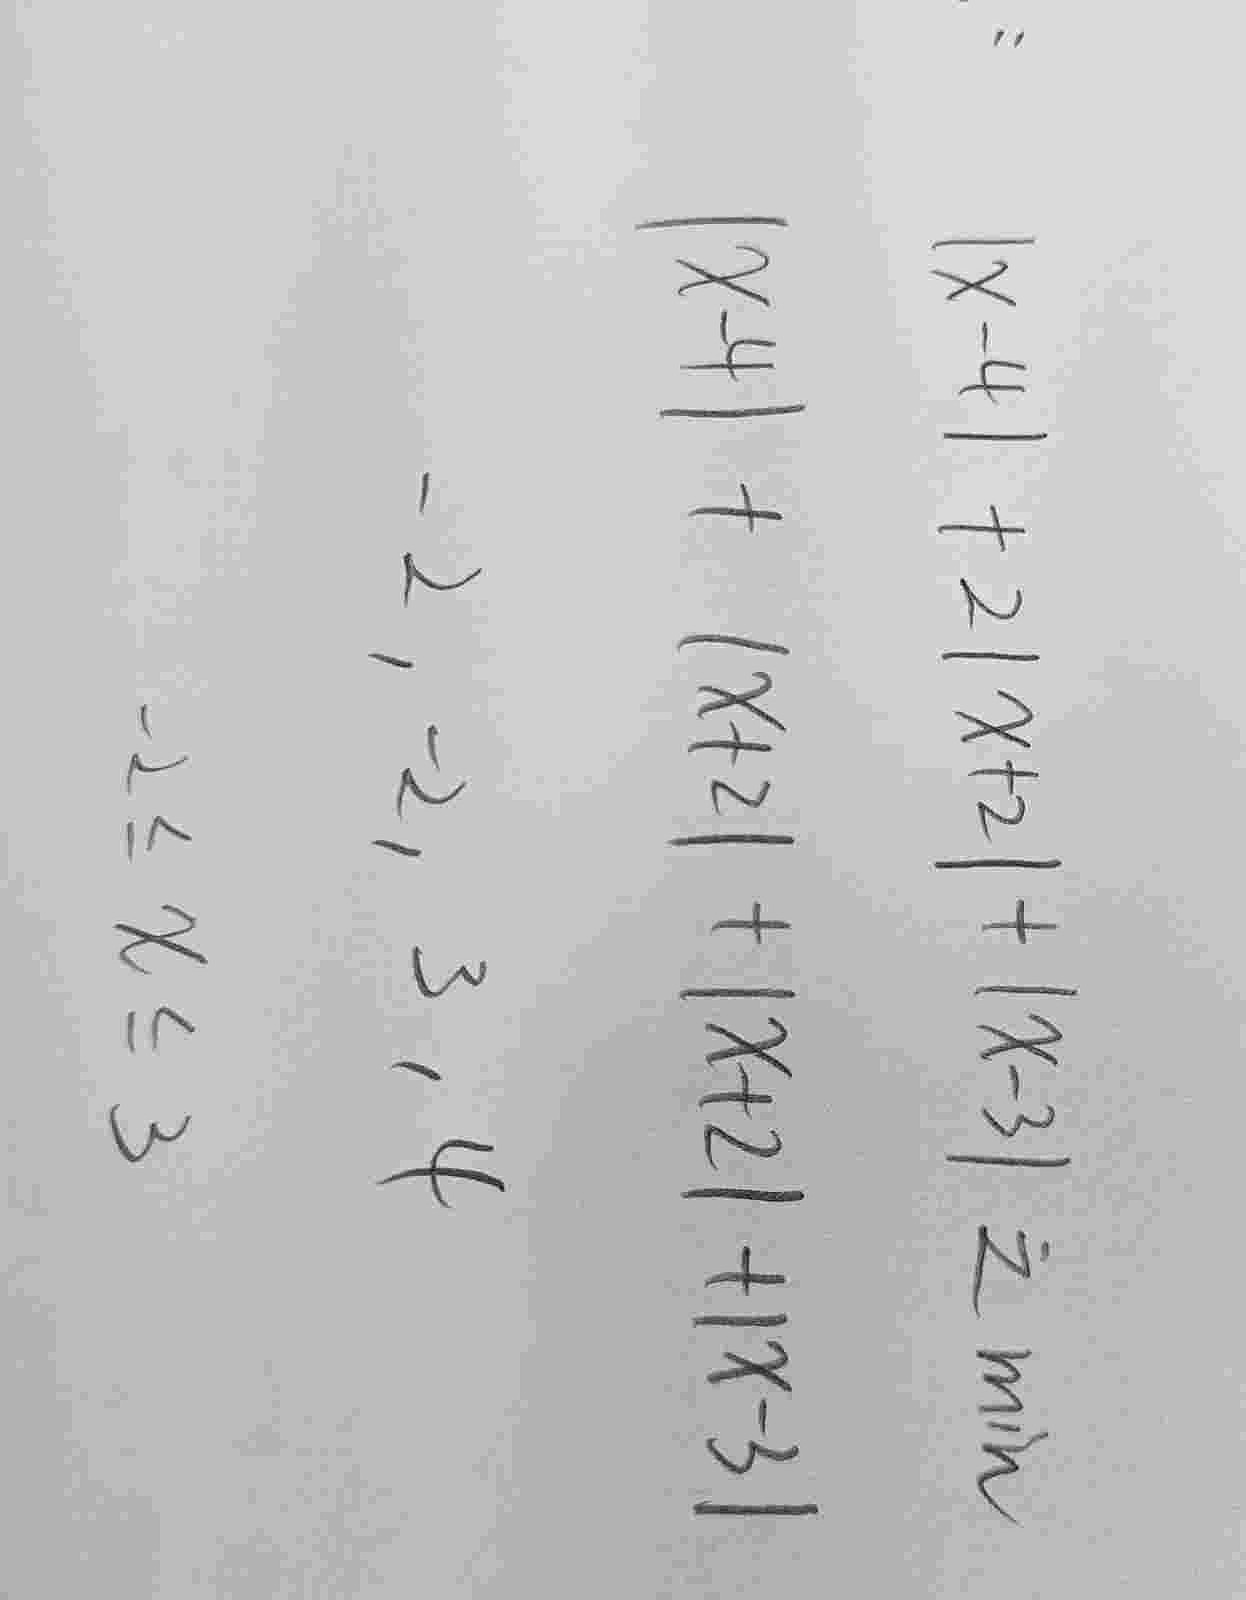 |x-4| + 2|x+2| + |x-3| 之 min
|x-4| + |x+2| + |x+2| + |x-3|
-2, -2, 3, 4
-2 ≤ x ≤ 3